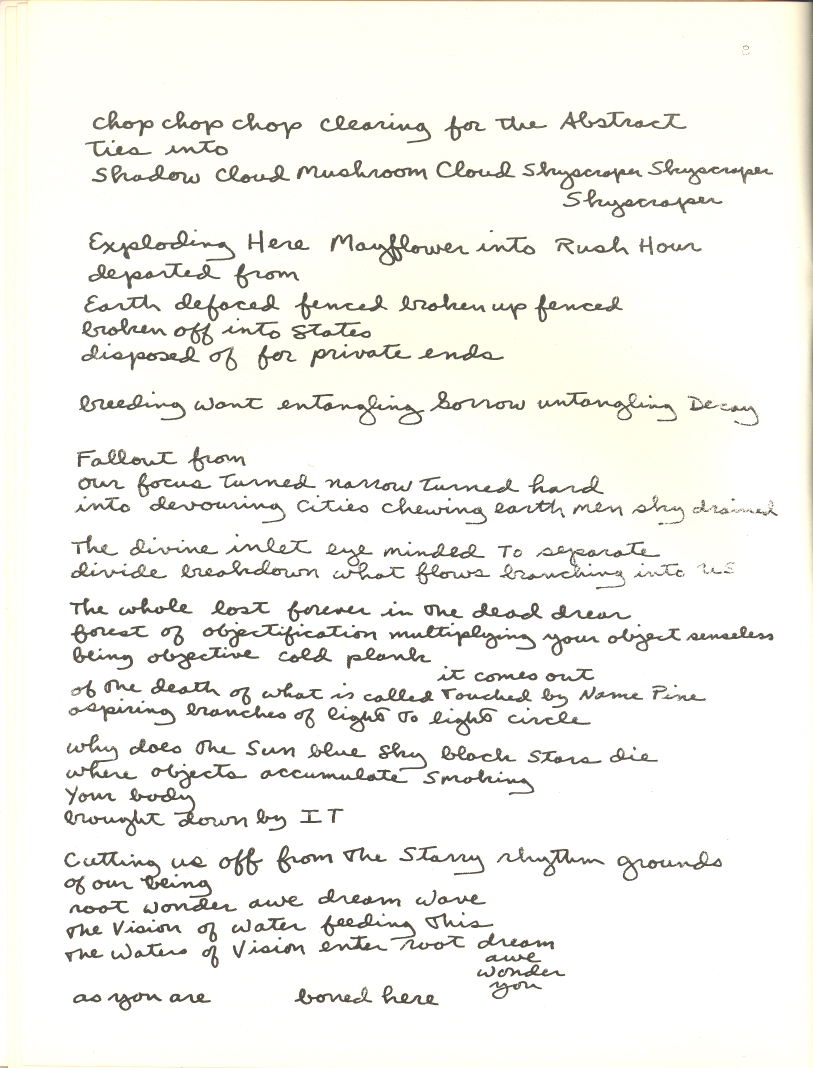 8
chop chop chop clearing for the Abstract
Ties into
Shadow Cloud Mushroom Cloud Skyscraper Skyscraper
Skyscraper
Exploding Here Mayflower into Rush Hour
departed from
Earth defaced fenced broken up fenced
broken off into States
disposed of for private ends
breeding want entangling Sorrow untangling Decay
Fallout from
our focus turned narrow turned hard
into devouring Cities chewing earth men sky drained
The divine inlet eye minded To separate
divide breakdown what flows branching into us
The whole lost forever in the dead drear
forest of objectification multiplying your object senseless
being objective cold plank
it comes out
of the death of what is called Touched by Name Pine
aspiring branches of light To light circle
why does the Sun blue Sky black Stars die
where objects accumulate smoking
Your body
brought down by IT
Cutting us off from the Starry rhythm grounds
of our being
root wonder awe dream wave
the Vision of Water feeding This
the Waters of Vision enter root dream
awe
wonder
you
as you are boned here